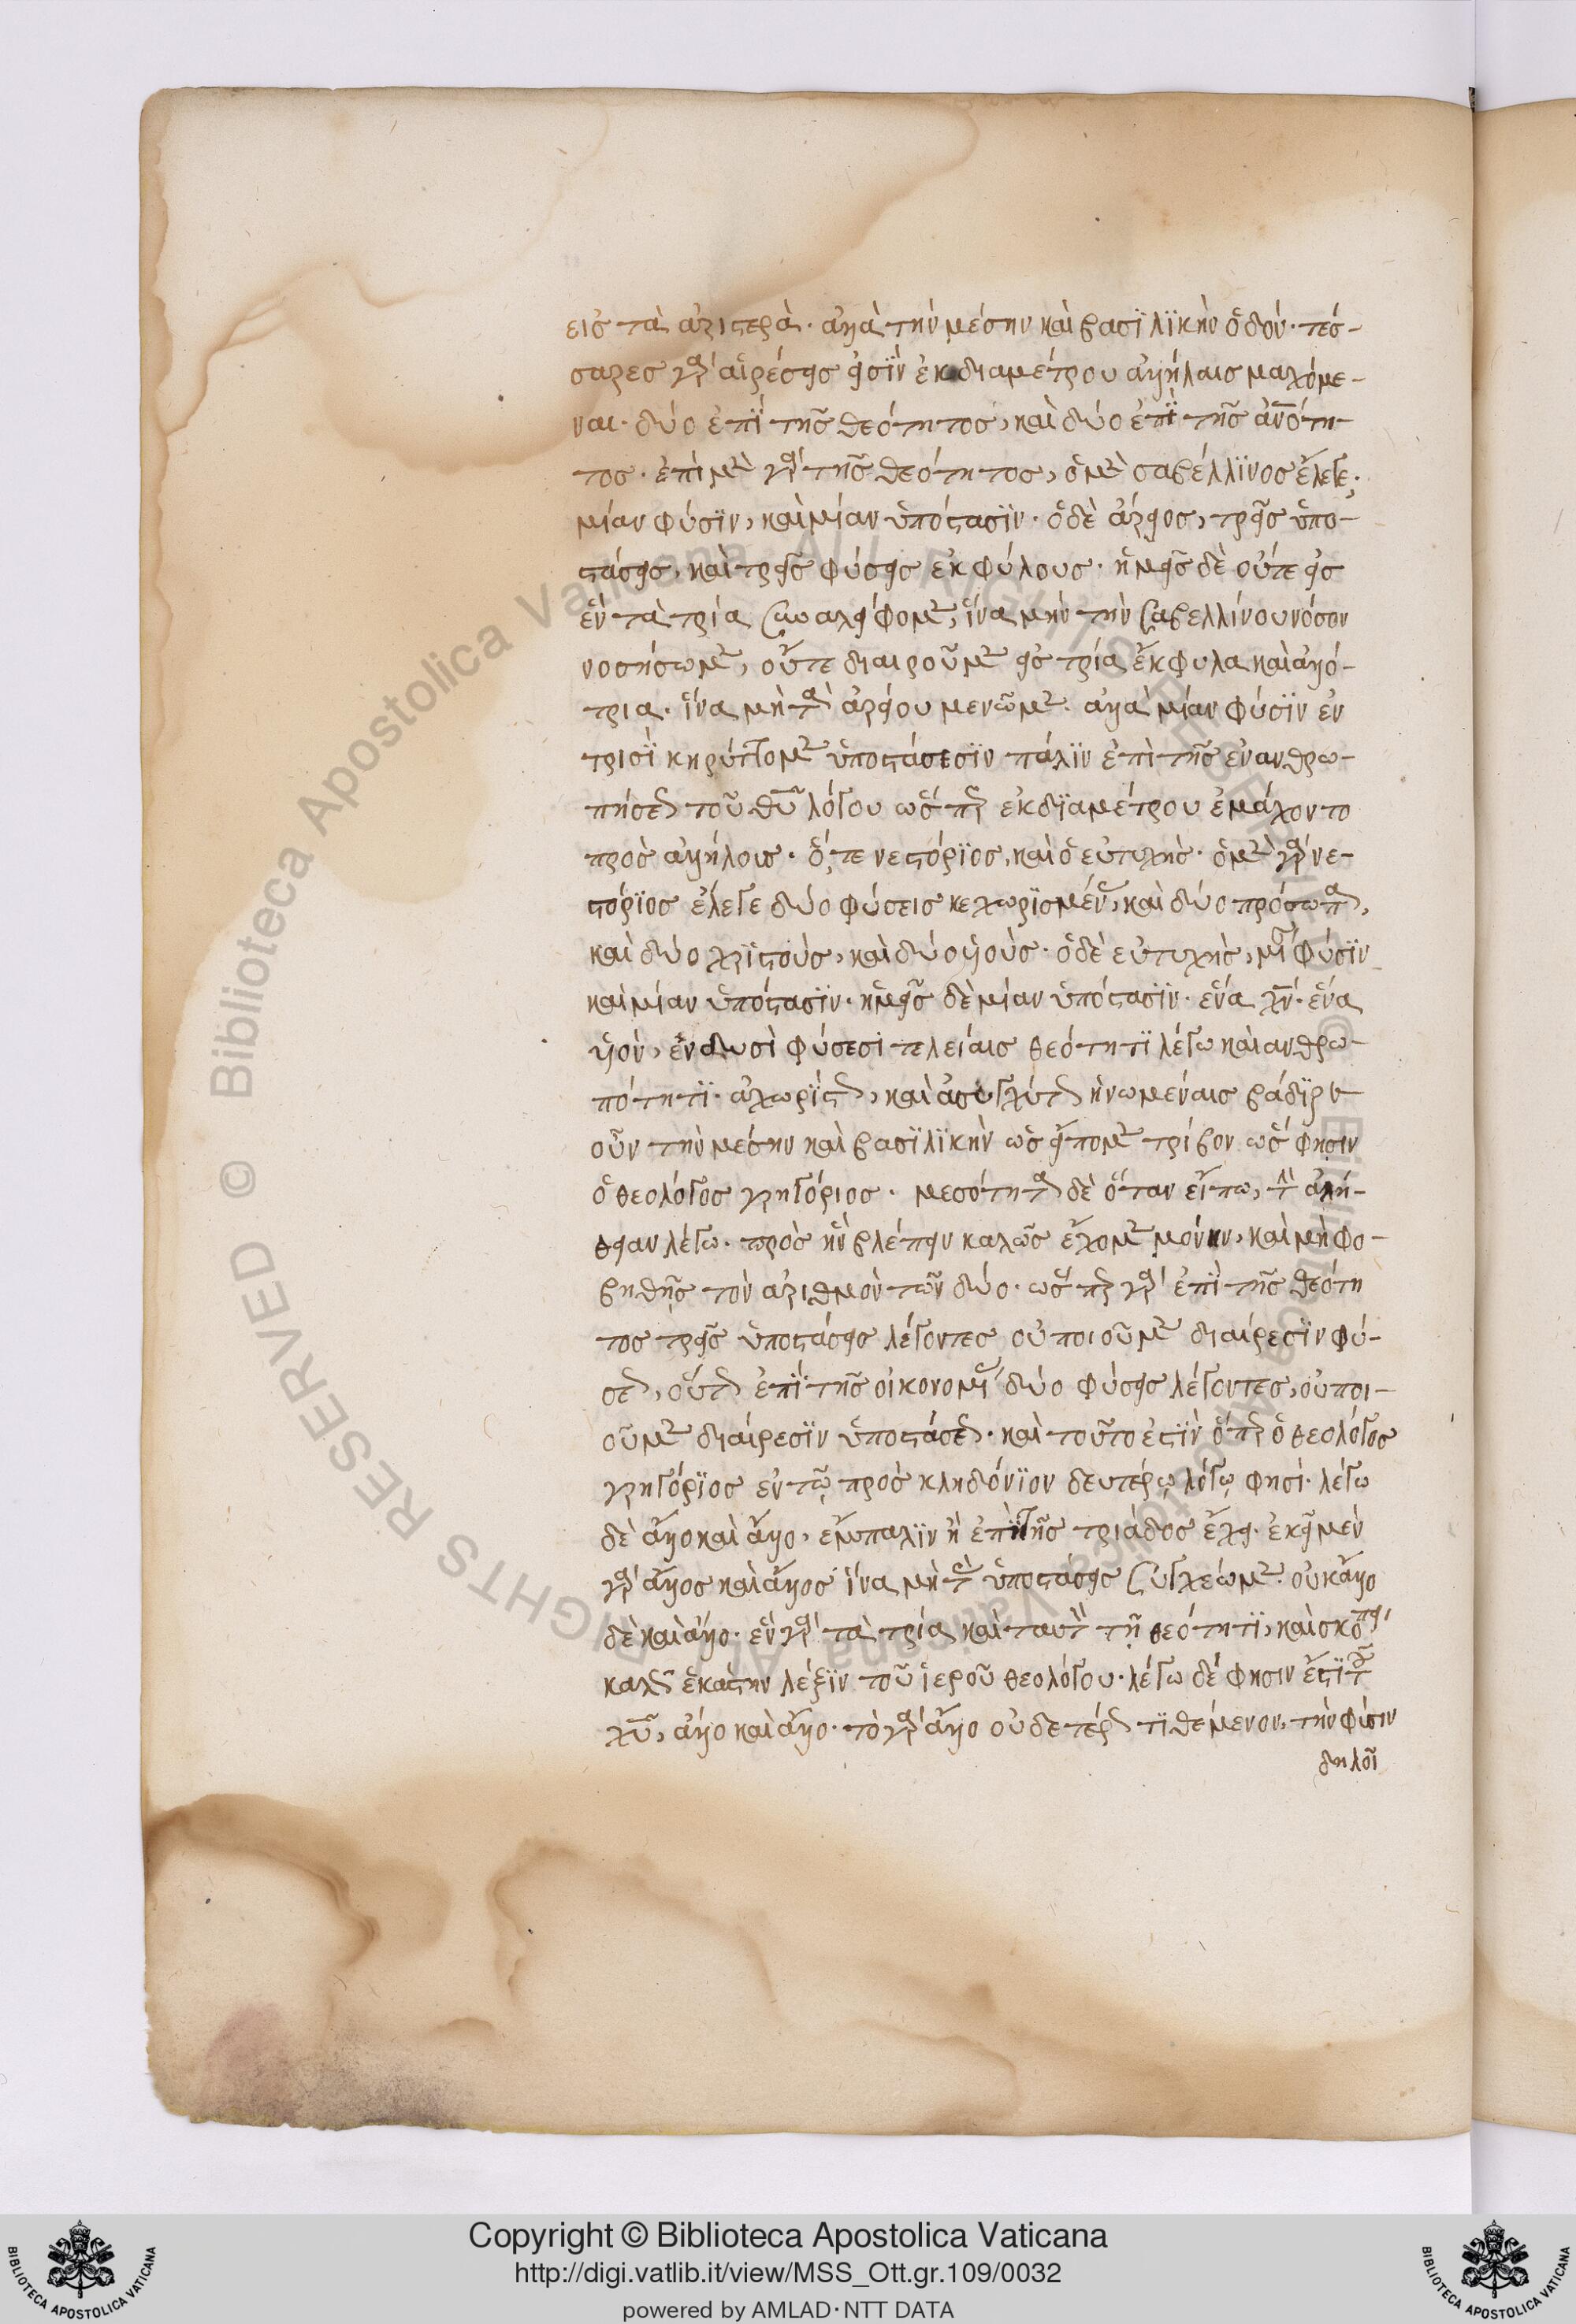 εἰς τὰ ἀριστερὰ· ἀλλὰ τὴν μέσην καὶ βασϊλϊκὴν ὁδόν· τέσ-
σαρες γὰρ αἱρέσεις εἰσϊν ἐκ διαμέτρου ἀλλήλαις μαχόμε-
ναι· δύο ἐπΐ τῆς θεότητος, καὶ δύο ἐπΐ τῆς ἀνότη-
τος· ἐπὶ μὲν γὰρ τῆς θεότητος, ὁ μὲν σαβέλλϊνος ἔλεγε,
μίαν φύσϊν, καὶ μίαν ὑπόστασϊν· ὁ δὲ ἄρειος, τρεῖς ὑπο-
στάσεις, καὶ τρεῖς φύσεις ἐκφύλους· ἡμεῖς δὲ οὔτε εἰς
ἓν τὰ τρία συναλείφομεν, ἵνα μὴν τὴν σαβελλίνου νόσον
νοσήσωμεν, οὔτε διαιροῦμεν εἰς τρία ἔκφυλα καὶ ἀλλό-
τρια· ἵνα μὴ τὰ ἀρείου μενῶμεν· ἀλλὰ μίαν φύσϊν ἐν
τρισΐ κηρύττομεν ὑποστάσεσϊν πάλϊν ἐπὶ τῆς ἐνανθρω-
πήσεως τοῦ θῦ λόγου ὥσπερ ἐκ δϊαμέτρου ἐμάχοντο
πρὸς ἀλλήλοις· ὅ,τε νεστόρϊος, καὶ ὁ εὐτυχὴς· ὁ μὲν γὰρ νε-
στόρϊος ἔλεγε δύο φύσεις κεχωρϊσμένας, καὶ δύο πρόσωπα,
καὶ δύο χρϊστοὺς, καὶ δύο ὑϊοὺς· ὁ δὲ εὐτυχὴς, μίαν φύσϊν
καὶ μίαν ὑπόστασϊν· ἡμεῖς δὲ μίαν ὑπόστασϊν· ἕνα χν· ἕνα
ὑϊὸν, ἐν δυσὶ φύσεσι τελείαις θεότητϊ λέγω καὶ ανθρω-
πότητϊ· ἀχωρίστως, καὶ ἀσυγχύτως ἡνωμέναις βάδϊζε
οὖν τὴν μέσην καὶ βασϊλϊκὴν ὡς εἴπομεν τρίβον ὥς φησιν
ὁ θεολόγος γρηγόριος· μεσότητα δὲ ὅταν εἴπω, τὴν ἀλή-
θειαν λέγω· πρὸς ἣν βλέπειν καλῶς ἔχομεν μόνην, καὶ μὴ φο-
βηθῇς τὸν ἀριθμὸν τῶν δύο· ὥσπερ γὰρ ἐπΐ τῆς θεότη
τος τρεῖς ὑποστάσεις λέγοντες οὐ ποιοῦμεν διαίρεσϊν φύ-
σεως, οὕτως ἐπΐ τῆς οἰκονομίας δύο φύσεις λέγοντες, οὐ ποι-
οῦμεν διαίρεσϊν ὑποστάσεως· καὶ τοῦτο ἐστϊν ὅπερ ὁ θεολόγος
γρηγόρϊος ἐν τῷ πρὸς κληδόνϊον δευτέρῳ λόγῳ φησί· λέγω
δὲ ἄλλο καὶ ἄλλο, ἔμπαλϊν ἢ ἐπὶ τῆς τριάδος ἔχει· ἐκεῖ μὲν
γὰρ ἄλλος καὶ ἄλλος ἵνα μὴ τὰς ὑποστάσεις συγχέωμεν· οὐκ ἄλλο
δὲ καὶ ἄλλο· ἓν γὰρ τὰ τρία καὶ ταυτὸν τῇ θεότητϊ, καὶ σκόπει
καλῶς ἑκάστην λέξϊν τοῦ ἱεροῦ θεολόγου· λέγω δέ φησιν ἔστϊ τοῦ
χῦ, ἄλλο καὶ ἄλλο· τὸ γὰρ ἄλλο οὐδετέρως τϊθέμενον, τὴν φύσιν
δηλοῖ